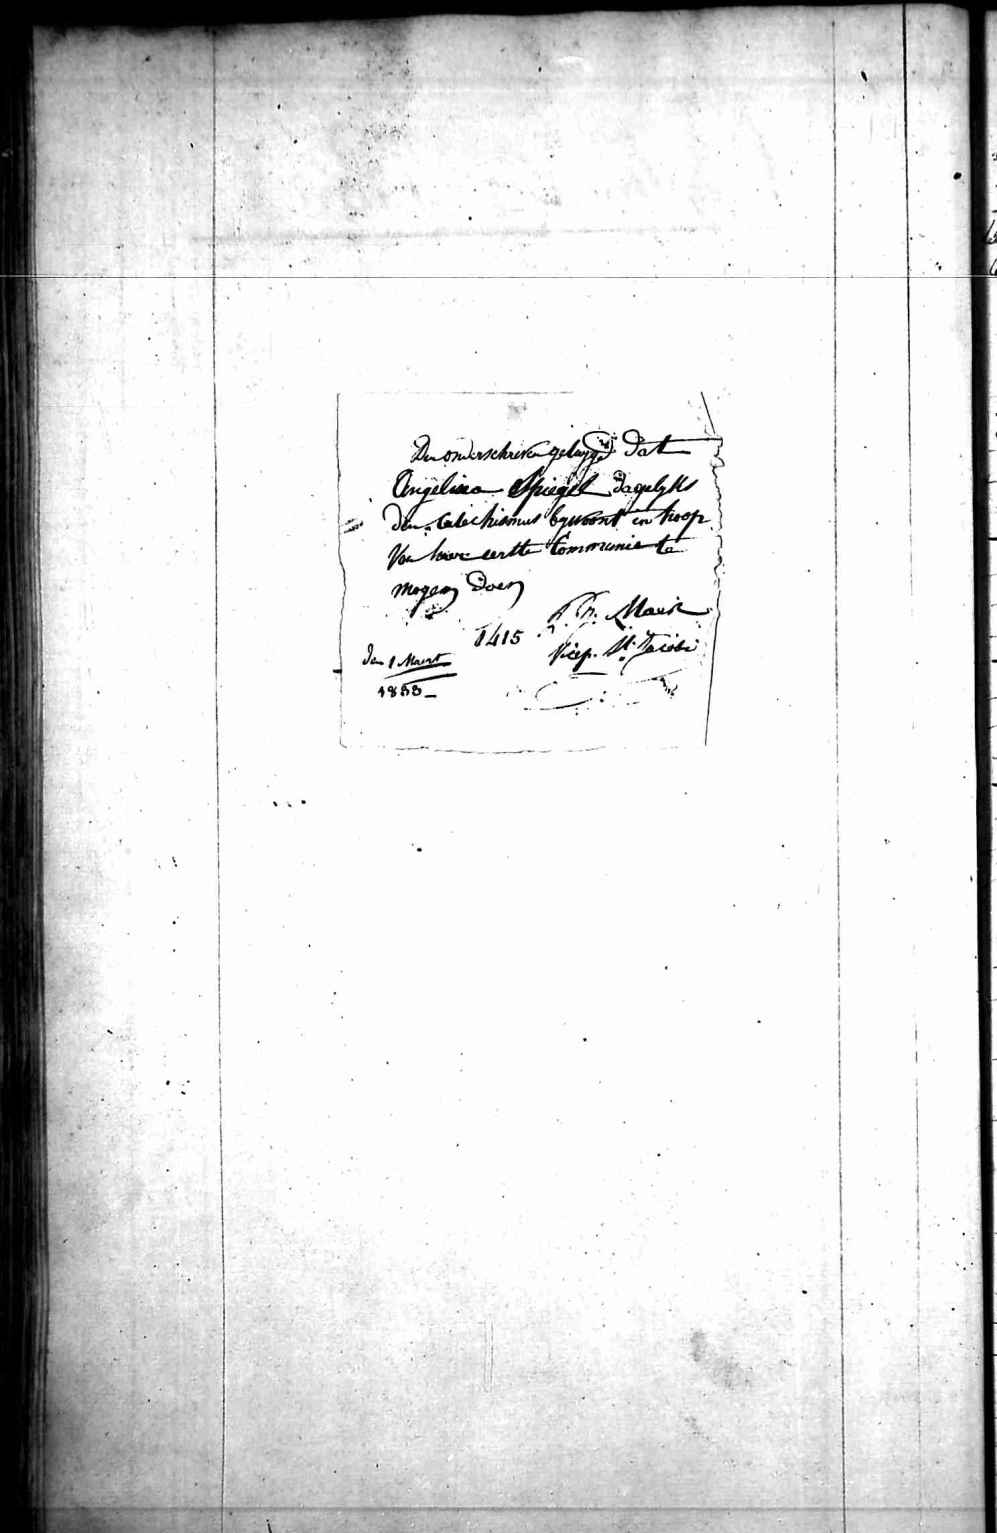 Den onderschreven getuygd Dat
Angelina Spiegel Dagelyks
den Catechismus bywoont in hoop
Van haer eerste Communie te
mogen Doen
1415
Vicep. St. Jacobi
den 1 Maert
1833